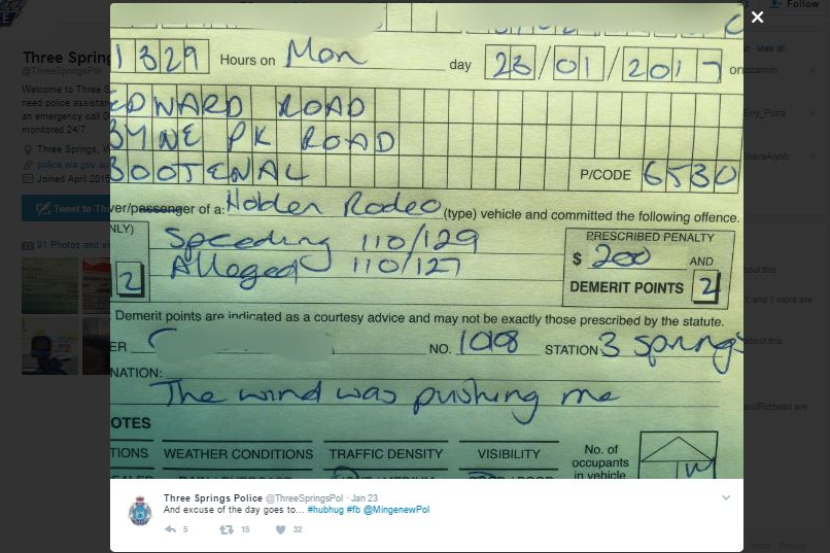 Follow
1329 Hours on Mon day 23/01/2017 on
EDWARD ROAD
BYNE PK ROAD
BOOTENAL P/CODE 6530
ver/passenger of a: Holden Rodeo (type) vehicle and committed the following offence.
NLY) Speeding 110/129 PRESCRIBED PENALTY
$ 200 AND
2 Alleged 110/127 DEMERIT POINTS 2
Demerit points are indicated as a courtesy advice and may not be exactly those prescribed by the statute.
ER NO. STATION 3 Springs
NATION:
The wind was pushing me
OTES
TIONS WEATHER CONDITIONS TRAFFIC DENSITY VISIBILITY No. of
occupants
in vehicle
Three Springs Police @ThreeSpringsPol · Jan 23
And excuse of the day goes to... #hubhug #fb @MingenewPol
5 15 32
Three Spring
@ThreeSpringsPol
Welcome to Three S
need police assistan
an emergency call 0
monitored 24/7
Three Springs, W
police.wa.gov.au
Joined April 2015
Tweet to Th
91 Photos and vi